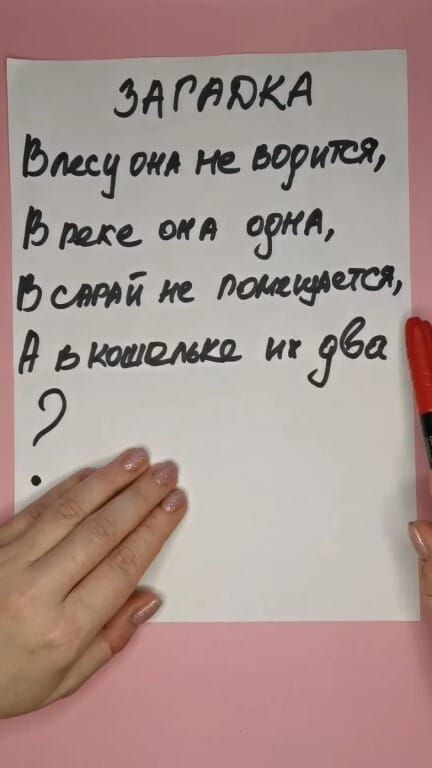 ЗАГАДКА
В лесу она не водится,
В реке она одна,
В сарай не помещается,
А в кошельке их два
?